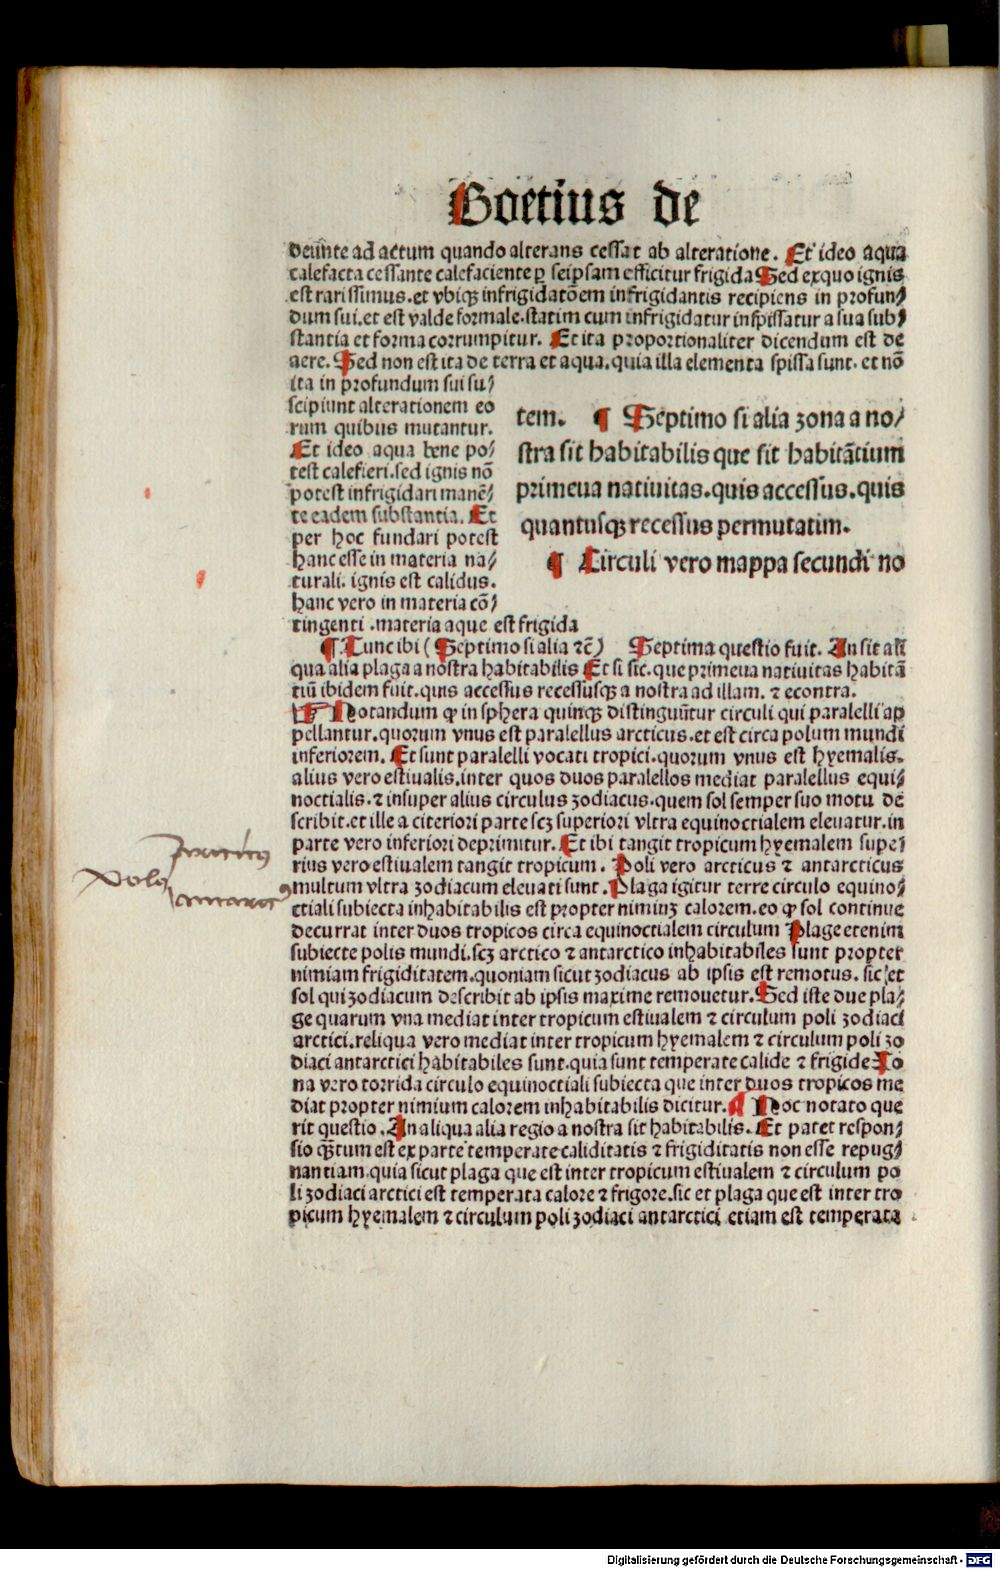 Boetius de
deūnte ad actum quando alterans cessat ab alteratione. Et ideo aqua
calefacta cessante calefaciente ꝑ seipsam efficitur frigida Sed exquo ignis
est rarissimus. et vbiqꝫ infrigidatōem infrigidantis recipiens in profun⸗
dum sui. et est valde formale. statim cum infrigidatur inspissatur a sua sub⸗
stantia et forma corrumpitur. Et ita proportionaliter dicendum est de
aere. Sed non est ita de terra et aqua. quia illa elementa spissa sunt. et nō
ita in profundum sui su⸗
scipiunt alterationem eo
rum quibus mutantur.
Et ideo aqua bene po⸗
test calefieri. sed ignis nō
potest infrigidari manē⸗
te eadem substantia. Et
per hoc fundari potest
hanc esse in materia na⸗
turali. ignis est calidus.
hanc vero in materia cō⸗
tingenti. materia aque est frigida
tem. ¶ Septimo si alia zona a no⸗
stra sit habitabilis que sit habitātium
primeua natiuitas. quis accessus. quis
quantusqꝫ recessus permutatim.
¶ Circuli vero mappa secundi no
¶ Tunc ibi (Septimo si alia ⁊c̄) Septima questio fuit. An sit ali
qua alia plaga a nostra habitabilis Et si sic. que primeua natiuitas habitā
tiū ibidem fuit. quis accessus recessusqꝫ a nostra ad illam. ⁊ econtra.
¶ Notandum ꝙ in sphera quinqꝫ distinguūtur circuli qui paralelli ap
pellantur. quorum vnus est paralellus arcticus. et est circa polum mundi
inferiorem. Et sunt paralelli vocati tropici. quorum vnus est hyemalis.
alius vero estiualis. inter quos duos paralellos mediat paralellus equi⸗
noctialis. ⁊ insuper alius circulus zodiacus. quem sol semper suo motu de
scribit. et ille a citeriori parte scꝫ superiori vltra equinoctialem eleuatur. in
parte vero inferiori deprimitur. Et ibi tangit tropicum hyemalem supe⸗
rius vero estiualem tangit tropicum. Poli vero arcticus ⁊ antarcticus
multum vltra zodiacum eleuati sunt. Plaga igitur terre circulo equino⸗
ctiali subiecta inhabitabilis est propter nimiuꝫ calorem. eo ꝙ sol continue
decurrat inter duos tropicos circa equinoctialem circulum Plage etenim
subiecte polis mundi. scꝫ arctico ⁊ antarctico inhabitabiles sunt propter
nimiam frigiditatem. quoniam sicut zodiacus ab ipsis est remotus. sic et
sol qui zodiacum describit ab ipsis maxime remouetur. Sed iste due pla⸗
ge quarum vna mediat inter tropicum estiualem ⁊ circulum poli zodiaci
arctici. reliqua vero mediat inter tropicum hyemalem ⁊ circulum poli zo
diaci antarctici habitabiles sunt. quia sunt temperate calide ⁊ frigide Zo
na vero torrida circulo equinoctiali subiecta que inter duos tropicos me
diat propter nimium calorem inhabitabilis dicitur. ¶ Hoc notato que
rit questio. An aliqua alia regio a nostra sit habitabilis. Et patet respon⸗
sio qꝫtum est ex parte temperate caliditatis ⁊ frigiditatis non esse repug⸗
nantiam. quia sicut plaga que est inter tropicum estiualem ⁊ circulum po
li zodiaci arctici est temperata calore ⁊ frigore. sic et plaga que est inter tro
picum hyemalem ⁊ circulum poli zodiaci antarctici etiam est temperata
Digitalisierung gefördert durch die Deutsche Forschungsgemeinschaft - DFG